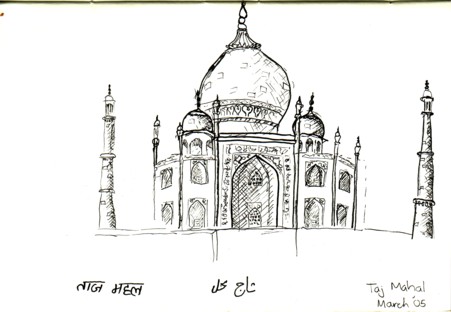 ताज महल
تاج محل
Taj Mahal
March '05